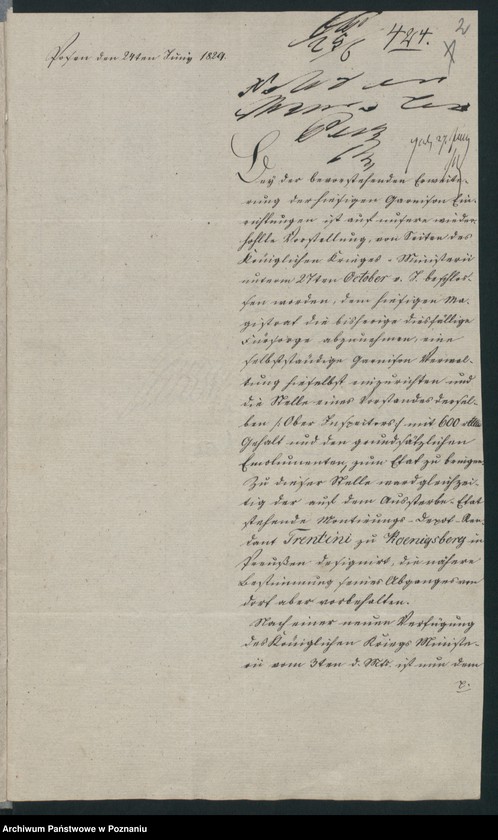 2
424.
256
Posen den 24ten Juny 1829.
Bey der bevorstehenden Erweite-
rung der hiesigen Garnison Ein-
richtungen ist auf unsere wieder-
hohlte Vorstellung, von Seiten des
Königlichen Krieges-Ministerii
unterm 27ten October v. J. beschlos-
sen worden, dem hiesigen Ma-
gistrat die bisherige diesfällige
Fürsorge abzunehmen, eine
selbstständige Garnison Verwal-
tung hieselbst einzurichten und
die Stelle eines Vorstandes dersel-
ben /: Ober Inspectors :/ mit 600 rtlr
Gehalt und den grundsätzlichen
Emolumenten, zum Etat zu bringen.
Zu dieser Stelle ward gleichzei-
tig der auf dem Aussterbe-Etat
stehende Montirungs-Depot-Ren-
dant Trentini zu Koenigsberg in
Preußen designirt, die nähere
Bestimmung seines Abganges von
dort aber vorbehalten.
Nach einer neuen Verfügung
des Königlichen Kriegs Ministe-
rii vom 3ten d. Mts. ist nun dem
Archiwum Państwowe w Poznaniu